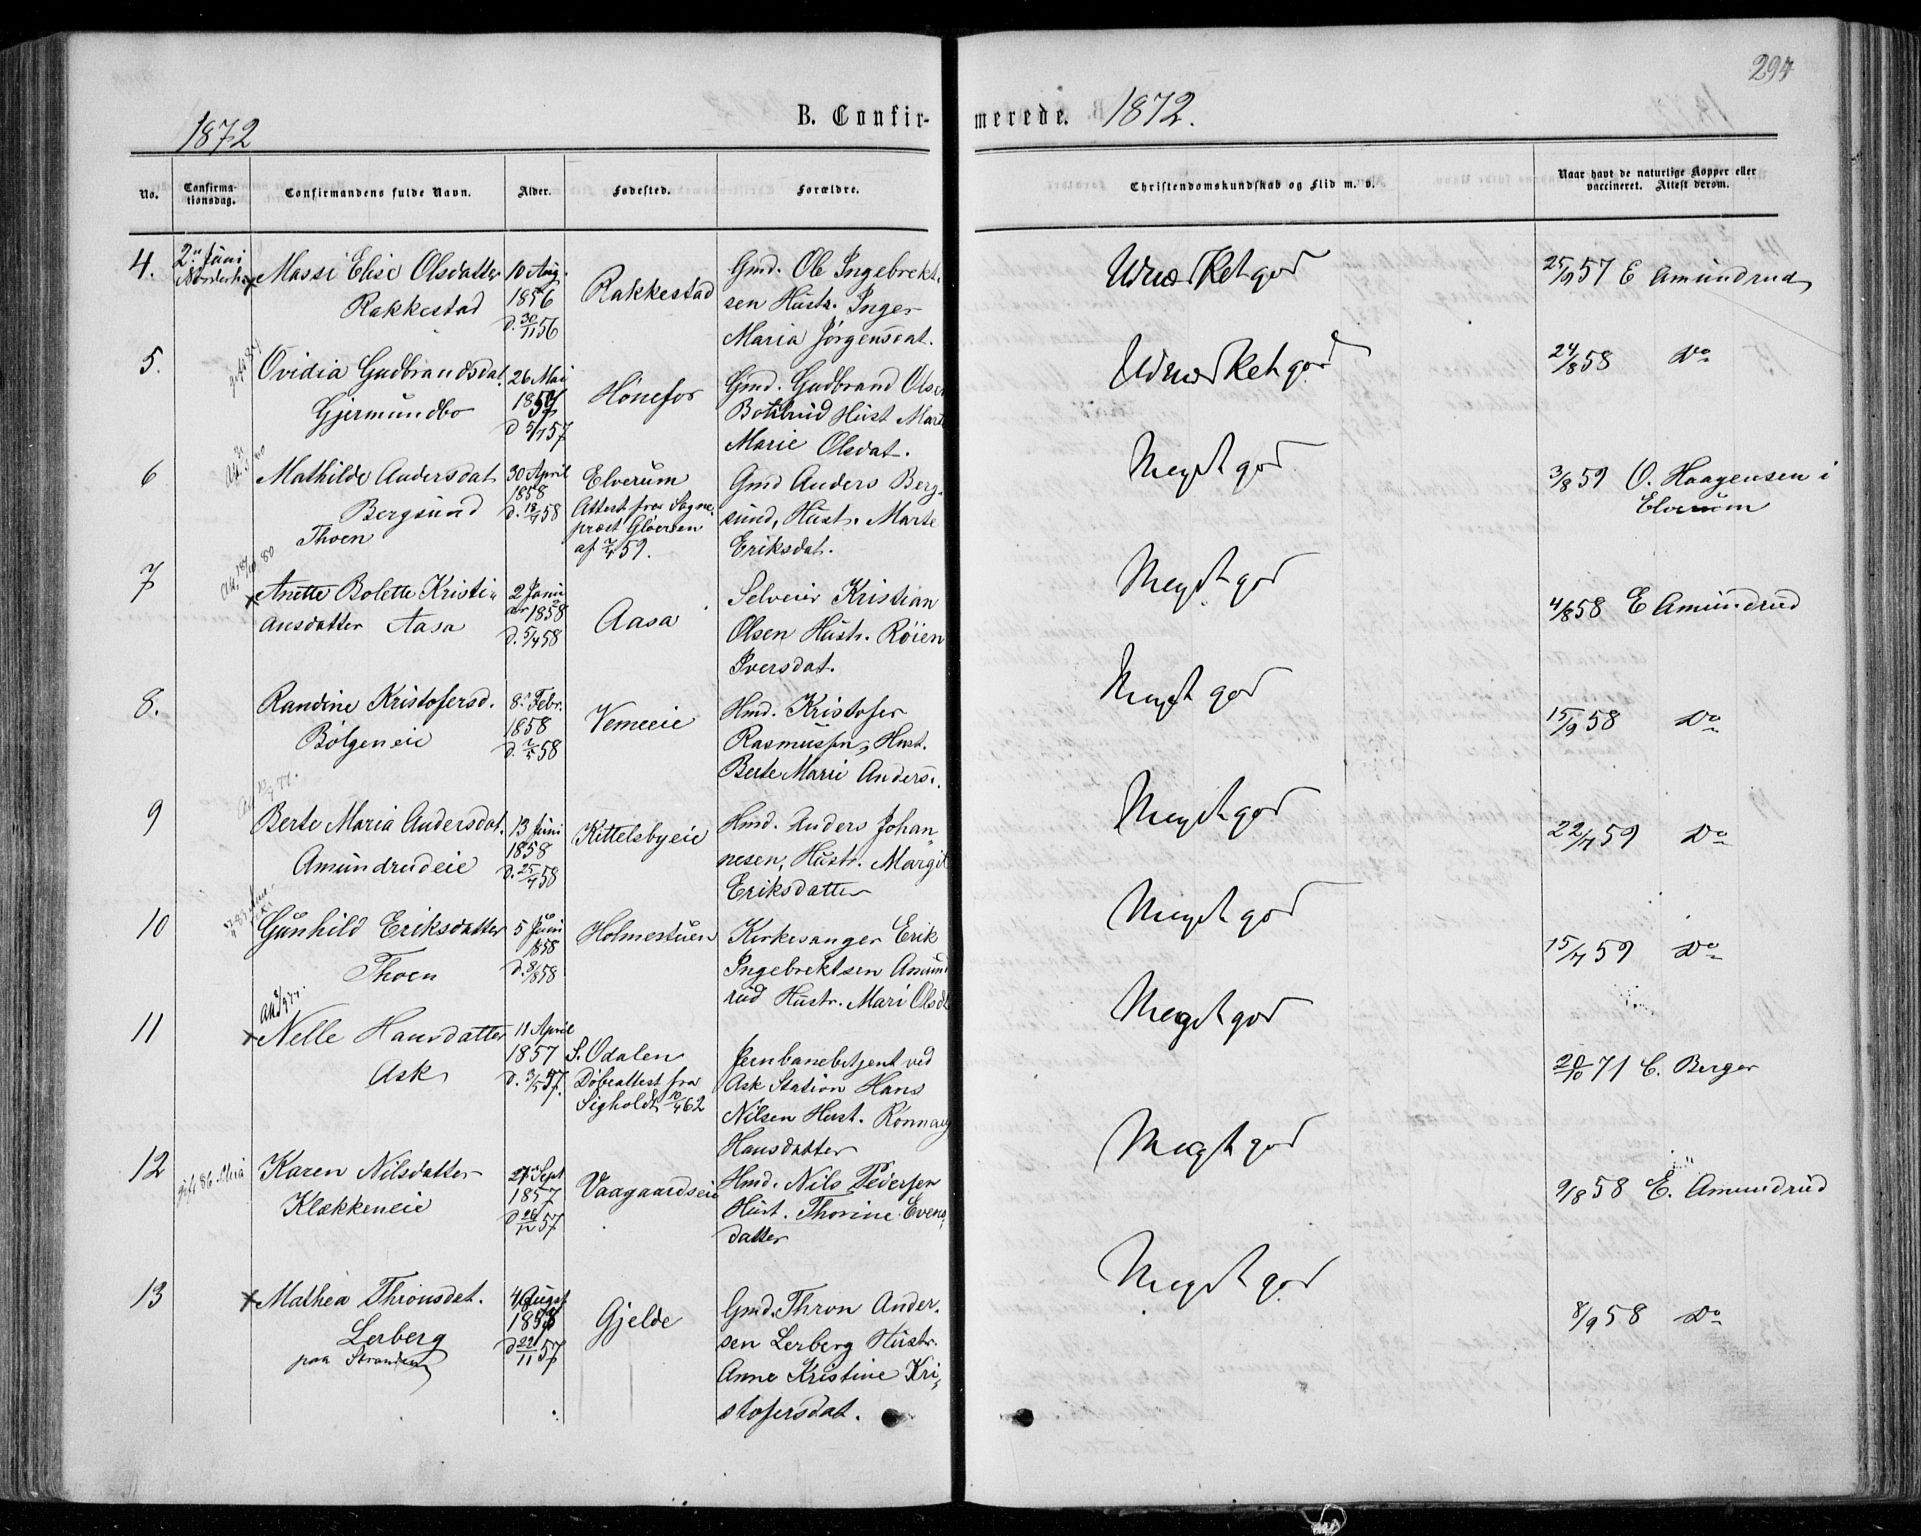 294
1872
B. Confir-
merede. 1872.
No.
Confirma-
tionsdag.
Confirmandens fulde Navn.
Alder.
Fødested.
Forældre.
Christendomskundskab og Flid m. v.
Naar havt de naturlige Kopper eller
vaccineret. Attest derom.
4.
2. Juni
Norderhov
Massi Elise Olsdatter
Rakkestad
10 Aug.
1856
d. 30/11 56
Rakkestad
Gmd. Ole Ingebrekt-
sen Hustr. Inger
Maria Jørgensdat.
Udmærket god
25/9 57 E Amundrud
5.
gift 84
Ovidia Gudbrandsdat.
Gjermundbo
26 Mai
1857
d 5/7 57
Hönefos
Gmd. Gudbrand Olsen
Botilrud Hust Marte
Marie Olsdat.
Udmærket god
24/8 58 Do
6
Mathilde Andersdat
Bergsund
Thoen
30 April
1858
d. 18/7 58
Elverum
Attest fra Sogne-
præst Gløersen
af 7/4 59.
Gmd Anders Berg-
sund, Hustr. Marte
Eriksdat.
Meget god
3/8 59 O. Haagensen i
Elverum
7
Anette Bolette Kristi-
ansdatter Aasa
2 Januar
1858
d. 5/4 58
Aasa
Selveier Kristian
Olsen Hustr. Röien
Iversdat.
Meget god
4/8 58 E Amundrud
8.
Randine Kristofersd.
Bölgeneie
8. Febr.
1858
d. 2/5 58
Vemeeie
Hmd. Kristofer
Rasmussen, Hust.
Berte Marie Anders.
Meget god
15/9 58 Do
9
Berte Maria Andersdat.
Amundrudeie
13 Juni
1858
d. 25/7 58
Kittelsbyeie
Hmd. Anders Johan-
nesen, Hustr. Margit
Eriksdatter
Meget god
22/7 59 Do
10
Gunhild Eriksdatter
Thoen
5 Juni
1858
d. 8/8 58
Holmerstuen
Kirkesanger Erik
Ingebrektsen Amund
rud Hustr. Mari Olsdt
Meget god
15/7 59 Do
11
Nelle Hansdatter
Ask
11 April
1857
d. 3/5 57.
S. Odalen
Døbeattest fra
Sigholdt 10/4 62
Jernbanebetjent ved
Ask Station Hans
Nilsen Hust. Rönnaug
Hansdatter
Meget god
20/10 71 C. Berger
12
gift 86
Karen Nilsdatter
Klækkeneie
27 Sept
1857
d 26/12 57
Vaagaardseie
Hmd. Nils Pedersen
Hust. Thorine Evens-
datter
Meget god
9/8 58 E. Amundrud
13
Mathea Thronsdat.
Lerberg
paa Stranden
4 August
1857
d 29/11 57
Gjelde
Gmd. Thron Ander-
sen Lerberg Hustr.
Anne Kristine Kri-
stofersdat.
Meget god
8/9 58 Do